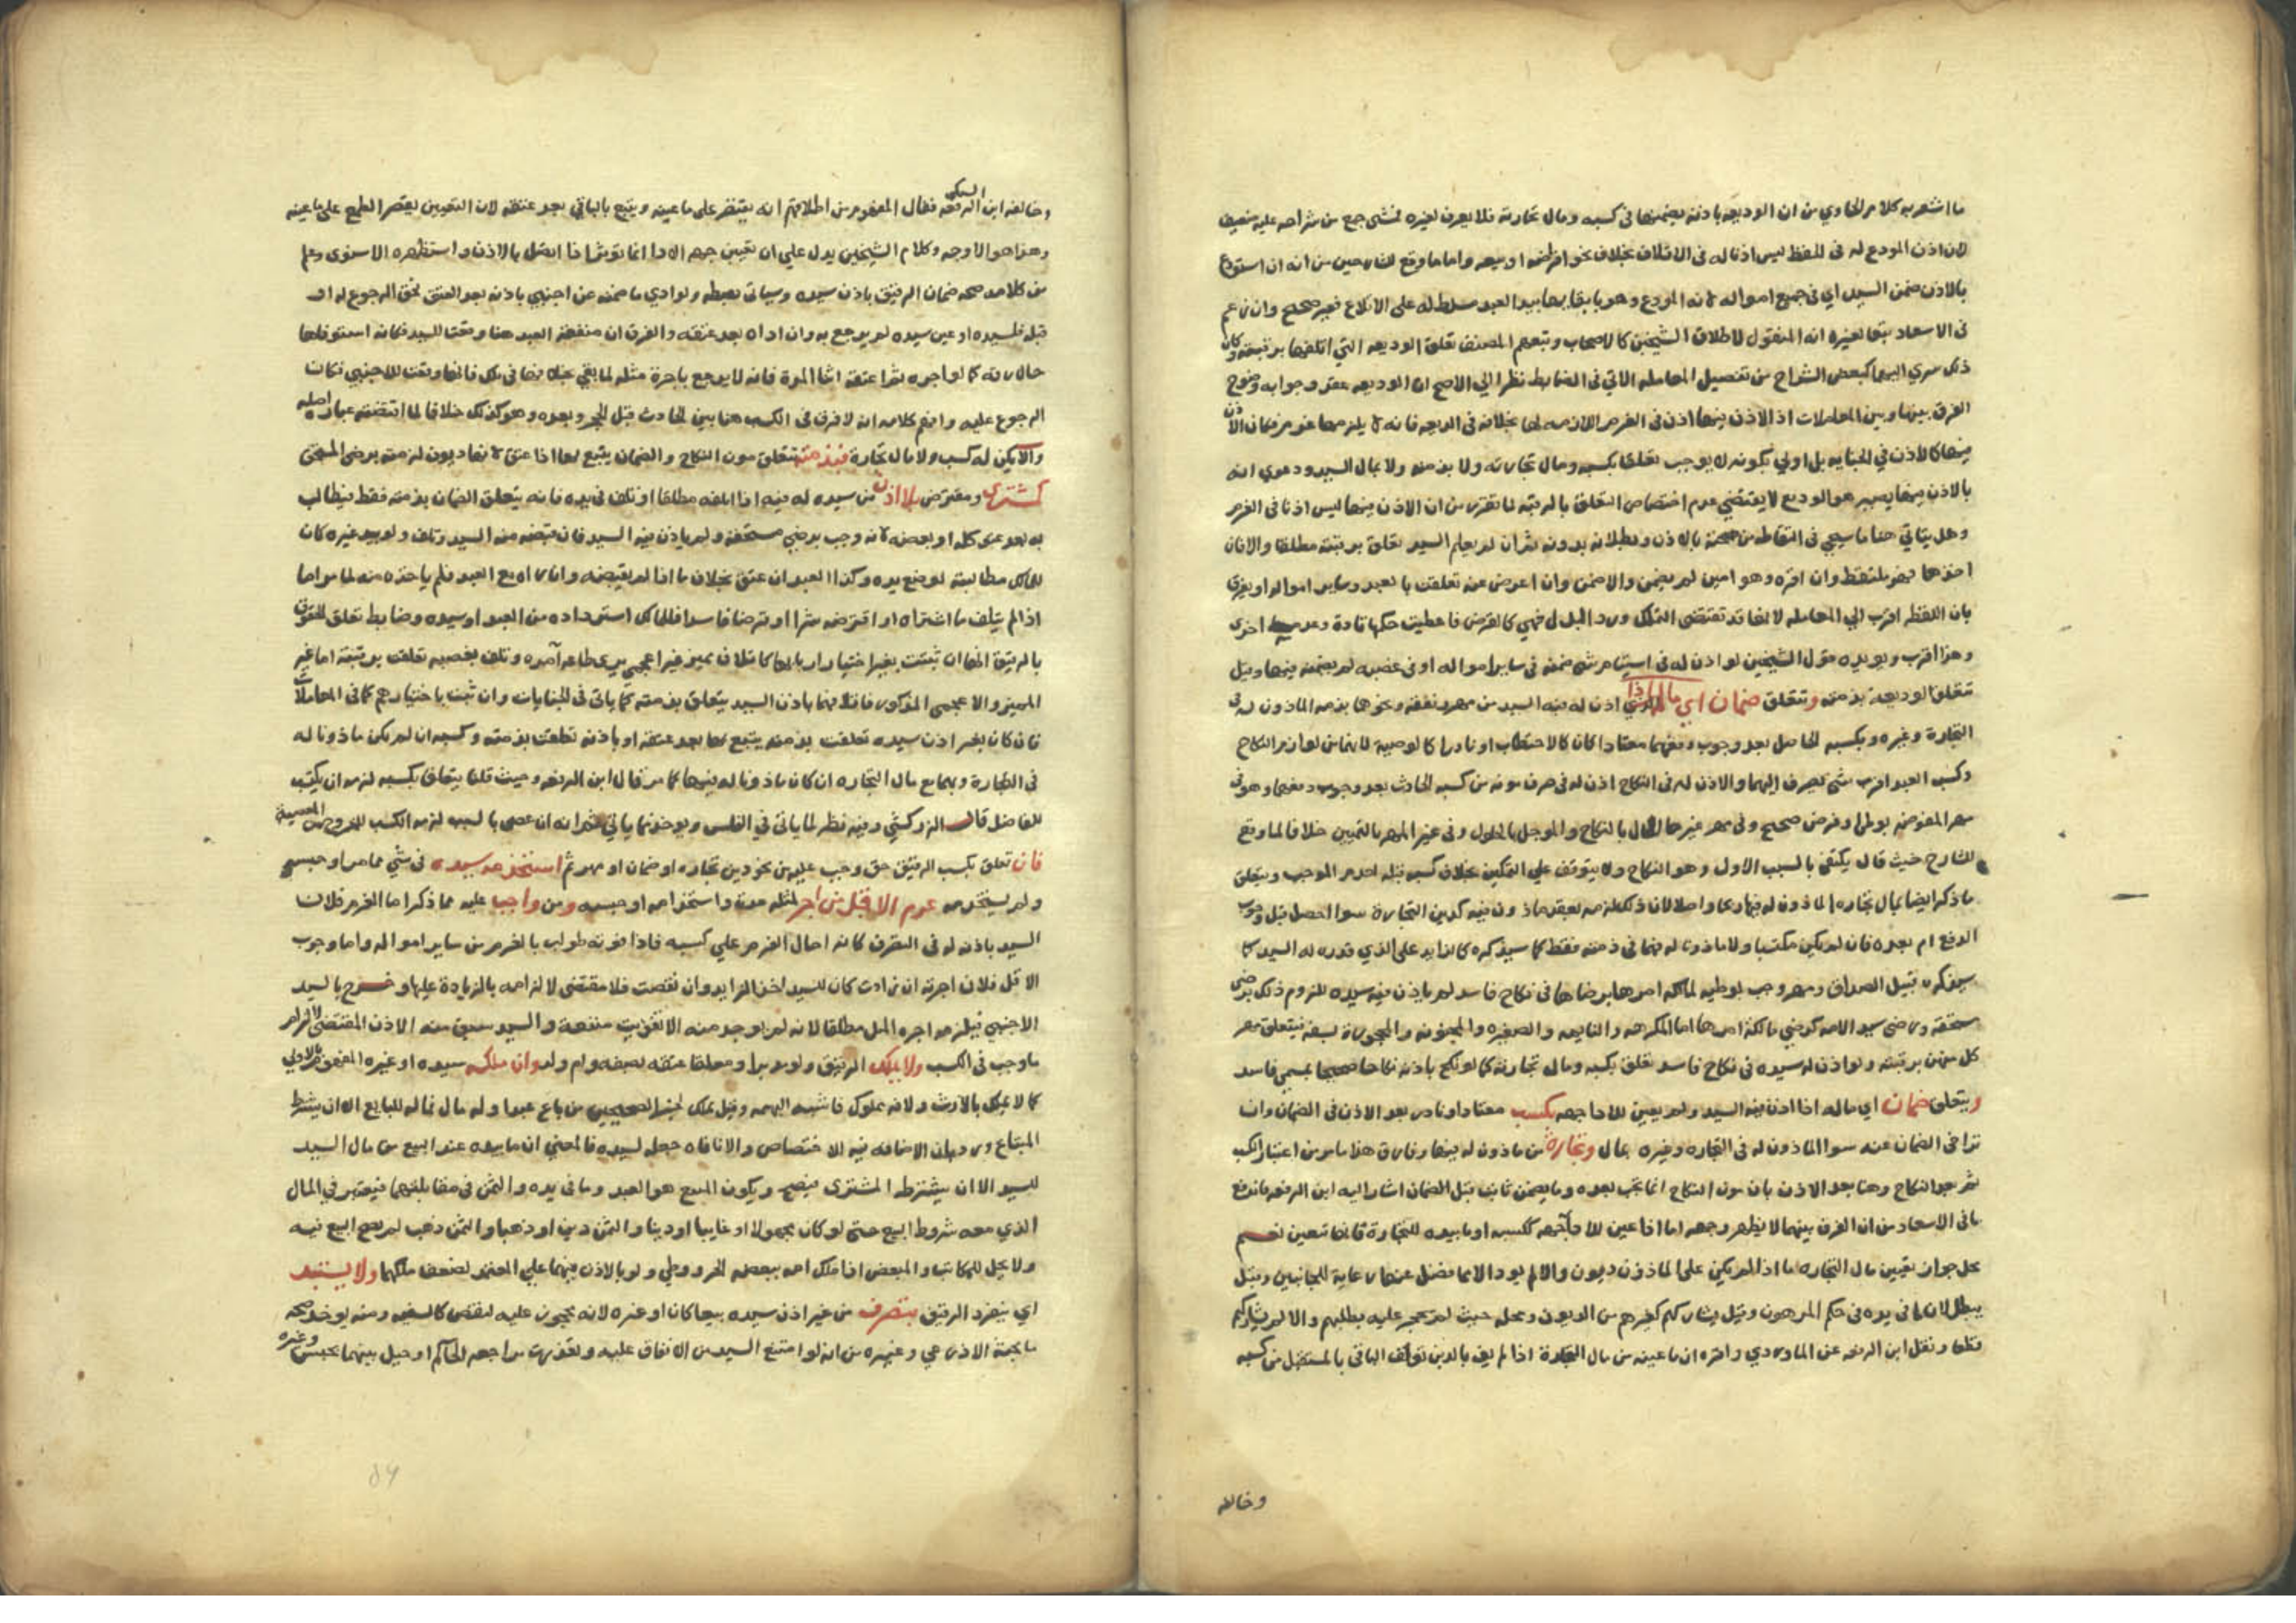 ما اشعر به كلام الحاوي من ان الوديعة باذنه يضمنها في كسبه ومال تجارته فلا يعرف لغيره لمشى جمع من شراحه عليه ضعيف
لان اذن المودع له في الحفظ ليس اذنا له في الاتلاف بخلاف نحو اقرضه او بيعه واما ما وقع للشارحين من انه ان استودع
بالاذن ضمن السيد اي في جميع امواله لانه المودع وهو بابقايها بيد العبد سلطه على الاتلاف فغير صحيح وان زعم
في الاسعاد تبعا لغيره انه المنقول لاطلاق الشيخين كالاصحاب وتبعهم المصنف تعلق الوديعة التي اتلفها برقبته وكان
ذلك سري اليهما كبعض الشراح من تفصيل المعاملة الاتي في الضابط نظرا الي الاصح ان الوديعة عقد وجوابه وضوح
الفرق بينها وبين المعاملات اذ الاذن فيها اذن في الغرم اللازمه لها بخلافه في الوديعه فانه لا يلزمها غرم فكان الاذن
فيها كالاذن في الجناية بل اولي بكونه لا يوجب تعلقا بكسبه ومال تجارته ولا بذمته ولا بمال السيد ودعوي انه
بالاذن فيها يصير هو الوديع لا يقتضي عدم اختصاص التعلق بالرقبة لما تقرر من ان الاذن فيها ليس اذنا في الغرم
وهل ياتي هنا ما سيجي في التقاطه من صحته بالاذن وبطلانه بدونه ثم ان لم يعلم السيد تعلق برقبته مطلقا والا فان
اخذها فهو ملتقط وان اقره وهو امين لم يضمن والا ضمن وان اعرض عنه تعلقت بالعبد وساير امواله او يفرق
بان اللقطه اقرب الي المعامله لانها قد تقتضي التملك ورد البدل فهي كالقرض فاعطيت حكمها تارة وعدمه اخري
وهذا اقرب ويويده قول الشيخين لو اذن له في استيام شي ضمنه في ساير امواله او في غصبه لم يضمنه فيها وقيل
تتعلق الوديعة بذمته وتتعلق ضمان اي مال اذا اذن له فيه السيد من مهر ونفقه ونحوها بذمه الماذون له في
التجارة وغيره وبكسبه الحاصل بعد وجوب دفعهما معتادا كان كالاحتطاب او نادرا كالوصية لانهما من لوازم النكاح
وكسب العبد اقرب شي يصرف اليهما والاذن له في النكاح اذن له في صرف مونه من كسبه الحادث بعد وجوب دفعهما وهو في
مهر المفوضه بوطئ او فرض صحيح وفي مهر غيرها الحال بالنكاح والموجل بالحلول وفي غير المهر بالتمكين خلافا لما وقع
للشارح حيث قال يكتفي بالسبب الاول وهو النكاح ولا يتوقف علي التمكين بخلاف كسبه قبله لعدم الموجب ويتعلق
ما ذكر ايضا بمال تجاره الماذون له فيها ربحا واصلا لان ذلك لزمه بعقد ماذون فيه كدين التجارة سوا احصل قبل وجوب
الدفع ام بعده فان لم يكن مكتسبا ولا ماذونا له فهما في ذمته فقط كما سيذكره كالزايد على الذي قدره له السيد كما
سيذكره قبيل الصداق ومهر وجب بوطيه لمالكه امرها برضاها في نكاح فاسد لم ياذن فيه سيده للزوم ذلك برضى
مستحقه ورضى سيد الامه كرضي مالكة امرها اما المكرهه والنايمه والصغيره والمجنونه والمحجورة لسفه فيتعلق مهر
كل منهن برقبته ولو اذن له سيده في نكاح فاسد تعلق بكسبه ومال تجارته كما لو نكح باذنه نكاحا صحيحا بمسمى فاسد
ويتعلق ضمان اي ماله اذا اذن فيه السيد ولم يعين للادا جهه بكسب معتاد او نادر بعد الاذن في الضمان وان
تراخى الضمان عنه سوا الماذون له في التجاره وغيره بمال وتجارة من ماذون له فيها وفارق هذا ما مر من اعتبار الكسب
ثم بعد النكاح وهنا بعد الاذن بان مون النكاح انما تجب بعده وما يضمن ثابت قبل الضمان اشار اليه ابن الرفعه فاندفع
ما في الاسعاد من ان الفرق بينهما لا يظهر وجهه اما اذا عين للادا جهه ككسبه او ما بيده للتجارة فانها تتعين نعم
محل جواز تعيين مال التجاره ما اذا لم يكن على الماذون ديون والا لم يود الا مما فضل عنها رعاية للجانبين وقيل
يبطل لان ما في يده في حكم المرهون وقيل يشاركهم كغيرهم من الديون ومحله حيث لم يحجر عليه بطلبهم والا لم يشاركهم
قطعا ونقل ابن الرفعه عن الماوردي واقره ان ما عينه من مال التجارة اذا لم يف بالدين تعلق الباقي بالمستقبل من كسبه
وخالفه
وخالفه ابن الرفعه السبكي فقال المفهوم من اطلاقهم انه يقتصر على ما عينه ويتبع بالباقي بعد عتقه لان التعيين يقصر الطمع على ما عينه
وهذا هو الاوجه وكلام الشيخين يدل علي ان تعيين جهه الادا انما يوثر اذا اتصل بالاذن واستظهره الاسنوي وعلم
من كلامه صحه ضمان الرقيق باذن سيده وسياتي بضبطه ولو ادي ما ضمنه عن اجنبي باذنه بعد العتق فحق الرجوع له او
قبله فلسيده او عن سيده لم يرجع به وان اداه بعد عتقه والفرق ان منفعة العبد هنا وقعت للسيد فكانه استوفاها
حال رقه كما لو اجره ثم اعتقه اثنا المدة فانه لا يرجع باجرة مثله لما بقي بخلافها في تلك فانها وقعت للاجنبي فكان
الرجوع عليه وافهم كلامه انه لا فرق في الكسب هنا بين الحادث قبل الحجر وبعده وهو كذلك خلافا لما اقتضته عبارة اصله
والا يكن له كسب ولا مال تجارة فبذمته تتعلق مون النكاح والضمان يتبع بها اذا عتق لانها ديون لزمته برضى المستحق
كمشترى ومقترض بلا اذن من سيده له فيه اذا اتلفه مطلقا او تلف في يده فانه يتعلق الضمان بذمته فقط فيطالب
به بعد عتق كله او بعضه لانه وجب برضي مستحقه ولم ياذن فيه السيد فان قبضه منه السيد وتلف ولو بيد غيره كان
للمالك مطالبته لوضع يده وكذا العبد ان عتق بخلاف ما اذا لم يقبضه وان راه مع العبد فلم ياخذه منه لما مر اما
اذا لم يتلف ما اشتراه او اقترضه شرا او قرضا فاسدا فللمالك استرداده من العبد او سيده وضابط تعلق الحقوق
بالرقيق انها ان ثبتت بغير اختيار اربابها كاتلاف مميز غير اعجمي يري طاعه آمره وتلف بغصبه تعلقت برقبته اما غير
المميز والاعجمي المذكور فاتلافهما باذن السيد يتعلق بذمته كما ياتي في الجنايات وان ثبتت باختيارهم كما في المعاملات
فان كان بغير اذن سيده تعلقت بذمته يتبع بها بعد عتقه او باذنه تعلقت بذمته وكسبه ان لم يكن ماذونا له
في التجارة وبهما مع مال التجاره ان كان ماذونا له فيها كما مر قال ابن الرفعه وحيث قلنا يتعلق بكسبه لزمه ان يكتسب
للفاضل قال الزركشي وفيه نظر لما ياتي في الفلس ويوخذ مما ياتي ثم انه ان عصى بالسبب لزمه الكسب للخروج من المعصية
فان تعلق بكسب الرقيق حق وجب عليه من نحو دين تجاره او ضمان او مهر ثم استخدمه سيده في شي مما مر او حبسه
ولم يستخدمه غرم الاقل من اجر لمثله مدة استخدامه او حبسه ومن واجب عليه مما ذكر اما الغرم فلان
السيد باذنه له في التصرف كانه احال الغرم علي كسبه فاذا فوته طولب بالغرم من ساير امواله واما وجوب
الاقل فلان اجرته ان زادت كان للسيد اخذ الزايد وان نقصت فلا مقتضى لالزامه بالزيادة عليها وخرج بالسيد
الاجنبي فيلزمه اجره المثل مطلقا لانه لم يوجد منه الا تفويت منفعة والسيد سبق منه الاذن المقتضي لالتزام
ما وجب في الكسب ولا يملك الرقيق ولو مدبرا ومعلقا عتقه بصفة وام ولد وان ملكه سيده او غيره المفهوم بالاولى
كما لا يملك بالارث ولانه مملوك فاشبه البهيمه وقيل يملك لخبر الصحيحين من باع عبدا وله مال فماله للبايع الا ان يشترط
المبتاع ورد بان الاضافه فيه للاختصاص والا نافاه جعله لسيده فالمعني ان ما بيده عند البيع من مال السيد
للسيد الا ان يشترطه المشتري فيصح ويكون المبيع هو العبد وما في يده والثمن في مقابلتهما فيعتبر في المال
الذي معه شروط البيع حتى لو كان مجهولا او غايبا او دينا والثمن دين او ذهبا والثمن ذهب لم يصح البيع فيه
ولا يحل للمكاتب والمبعض اذا ملك امه ببعضه الحر ووطي ولو بالاذن فيهما علي المعتمد لضعف ملكهما ولا يستبد
اي ينفرد الرقيق بتصرف من غير اذن سيده بيعا كان او غيره لانه محجور عليه لنقص كالسفيه ومنه يوخذ صحه
ما بحثه الاذرعي وغيره من انه لو امتنع السيد من الانفاق عليه وتعذرت مراجعه الحاكم او حيل بينهما بحبس وغيره